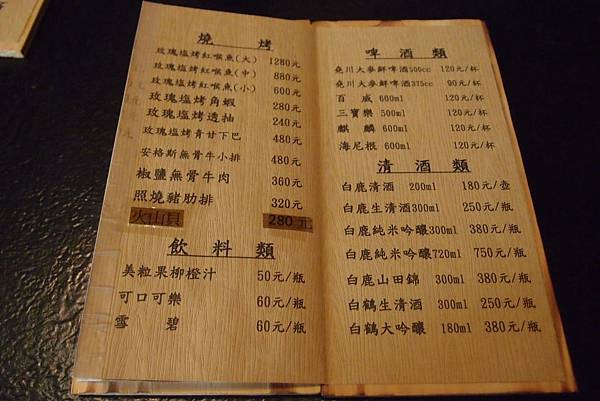 燒 烤
玫瑰塩烤紅喉魚(大) 1280元
玫瑰塩烤紅喉魚(中) 880元
玫瑰塩烤紅喉魚(小) 600元
玫瑰塩烤角蝦 280元
玫瑰塩烤透抽 240元
玫瑰塩烤青甘下巴 480元
安格斯無骨牛小排 480元
椒鹽無骨牛肉 360元
照燒豬肋排 320元
火山貝 280元
飲 料 類
美粒果柳橙汁 50元/瓶
可口可樂 60元/瓶
雪 碧 60元/瓶
啤 酒 類
堯川大麥鮮啤酒500cc 120元/杯
堯川大麥鮮啤酒375cc 90元/杯
百 威 600ml 120元/杯
三寶樂 500ml 120元/杯
麒 麟 600ml 120元/杯
海尼根 600ml 120元/杯
清 酒 類
白鹿清酒 200ml 180元/壺
白鹿生清酒300ml 250元/瓶
白鹿純米吟釀300ml 380元/瓶
白鹿純米吟釀720ml 750元/瓶
白鹿山田錦 300ml 380元/瓶
白鶴生清酒 300ml 250元/瓶
白鶴大吟釀 180ml 380元/瓶